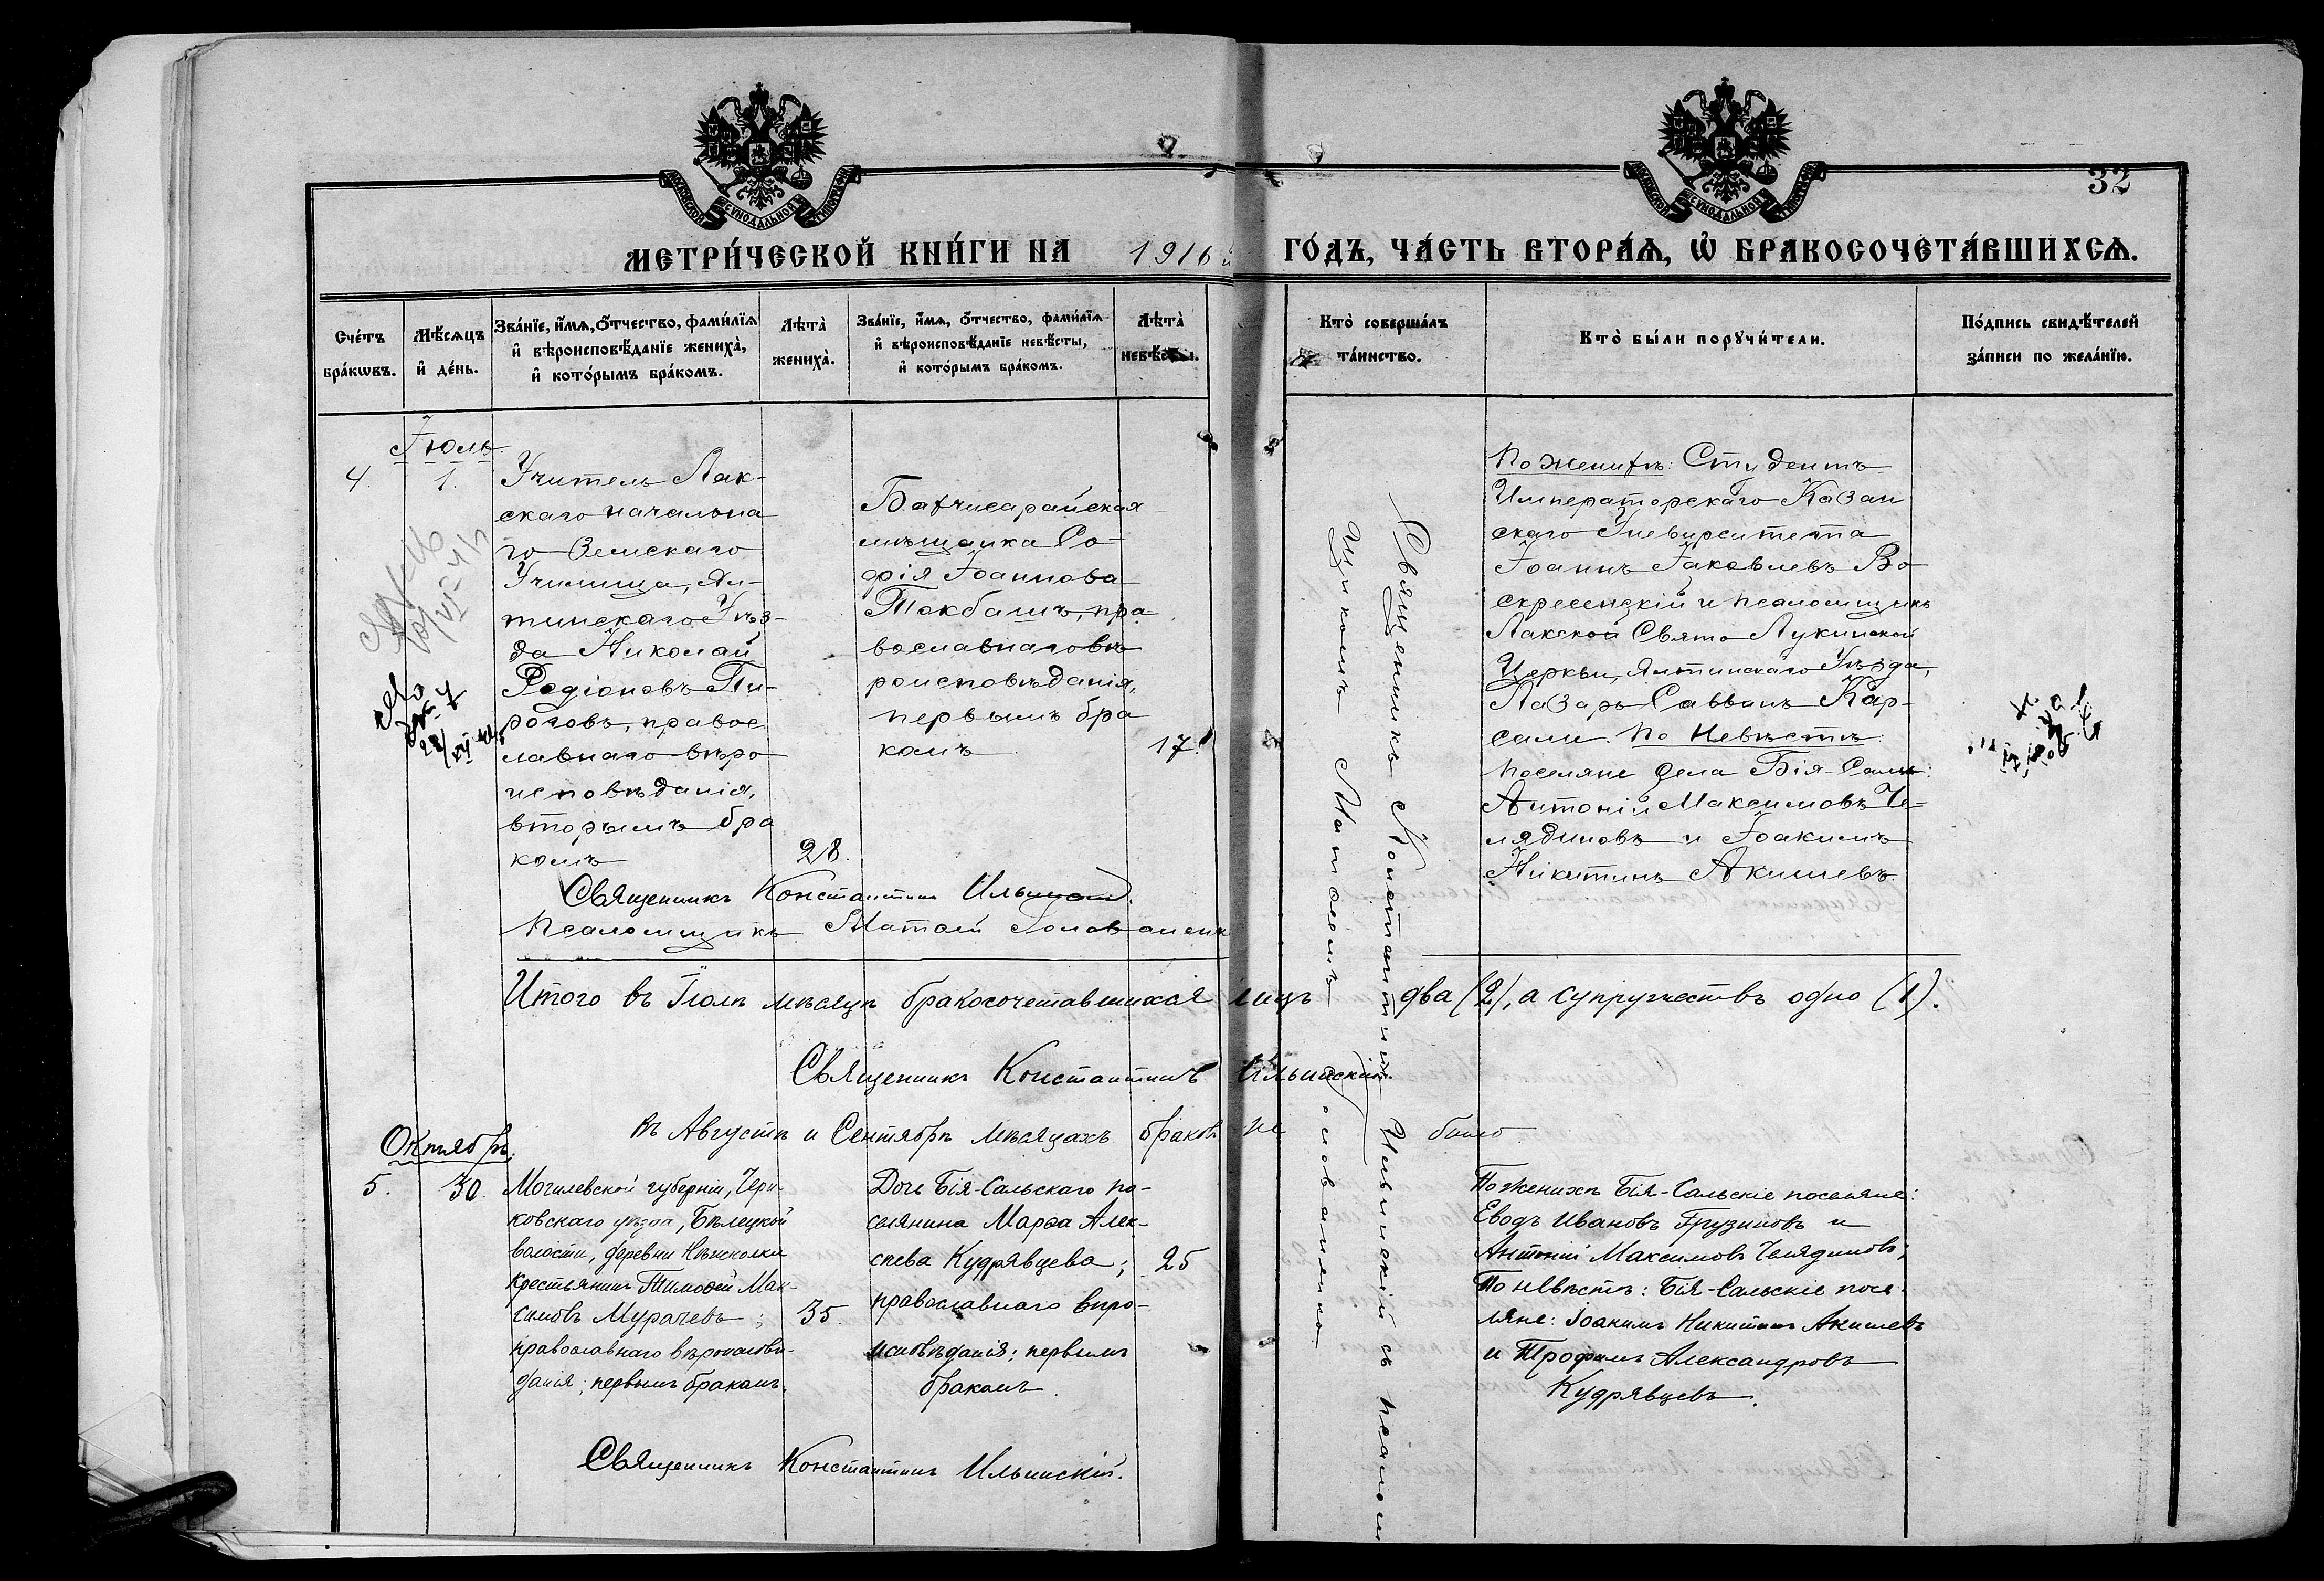 32
МЕТРИ́ЧЕСКОЙ КНИ́ГИ НА 1916й ГО́ДЪ, ЧА́СТЬ ВТОРА́Ѧ, Ѡ҆ БРАКОСОЧЕТА́ВШИХСѦ.
Сче́тъ бра́кѡвъ.
Мѣ́сѧцъ и҆ де́нь.
Зва́нїе, и҆́мѧ, ѻ҆́тчество, фами́лїѧ и҆ вѣроисповѣ́данїе жениха̀, и҆ кото́рымъ бра́комъ.
Лѣта̀ жениха̀.
Зва́нїе, и҆́мѧ, ѻ҆́тчество, фами́лїѧ и҆ вѣроисповѣ́данїе невѣ́сты, и҆ кото́рымъ бра́комъ.
Лѣта̀ невѣ́сты.
Кто̀ соверша́лъ та́инство.
Кто̀ бы́ли порꙋчи́тели.
По́дпись свидѣ́телей за́писи по жела́нїю.
Іюль.
4.
1.
Учитель Лак-
скаго начальна
го Земскаго
Училища, Ял-
тинскаго Уѣз-
да Николай
Родіоновъ Пи-
роговъ, правос
лавнаго вѣро
исповѣданія,
вторымъ бра
комъ
28.
Бахчисарайская
мѣщанка Со-
фія Іоаннова
Токбашъ, пра
вославнаго вѣ
роисповѣданія,
первымъ бра
комъ
17.
Священникъ Константинъ Ильинскій съ псалом
щикомъ Матѳеемъ Голованенко
По женихѣ: Студентъ
Императорскаго Казан
скаго Университета
Іоаннъ Іаковлевъ Во
скресенскій и псаломщикъ
Лакской Свято Лукинской
Церкви, Ялтинскаго Уѣзда,
Лазарь Саввинъ Кар-
сали. По Невѣстѣ:
поселяне села Бія-Сали:
Антоній Максимовъ Че-
лядиновъ и Іоакимъ
Никитинъ Акишевъ.
Священникъ Константинъ Ильинскій.
Псаломщикъ Матѳей Голованенк
Итого въ Іюлѣ мѣсяцѣ бракосочетавшихся лицъ два (2), а супружествъ одно (1).
Священникъ Константинъ Ильинскій.
Въ Августѣ и Сентябрѣ мѣсяцахъ браковъ не было
Октябрь.
5.
30.
Могилевской губерніи, Чери-
ковскаго уѣзда, Бѣлецкой
волости, деревни
крестьянинъ Тимоѳей Мак-
симовъ Мурачевъ;
православнаго вѣроисповѣ-
данія; первымъ бракомъ.
35.
Дочь Бія-Сальскаго по-
селянина Марѳа Алек-
сѣева Кудрявцева;
православнаго вѣро-
исповѣданія; первымъ
бракомъ.
25
По женихѣ Бія-Сальскіе поселяне:
Еводъ Ивановъ Грузиновъ и
Антоній Максимовъ Челядиновъ;
По невѣстѣ: Бія-Сальскіе посе-
ляне: Іоакимъ Никитинъ Акишевъ
и Трофимъ Александровъ
Кудрявцевъ.
Священникъ Константинъ Ильинскій.